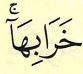 خَرَابِهَآۚ